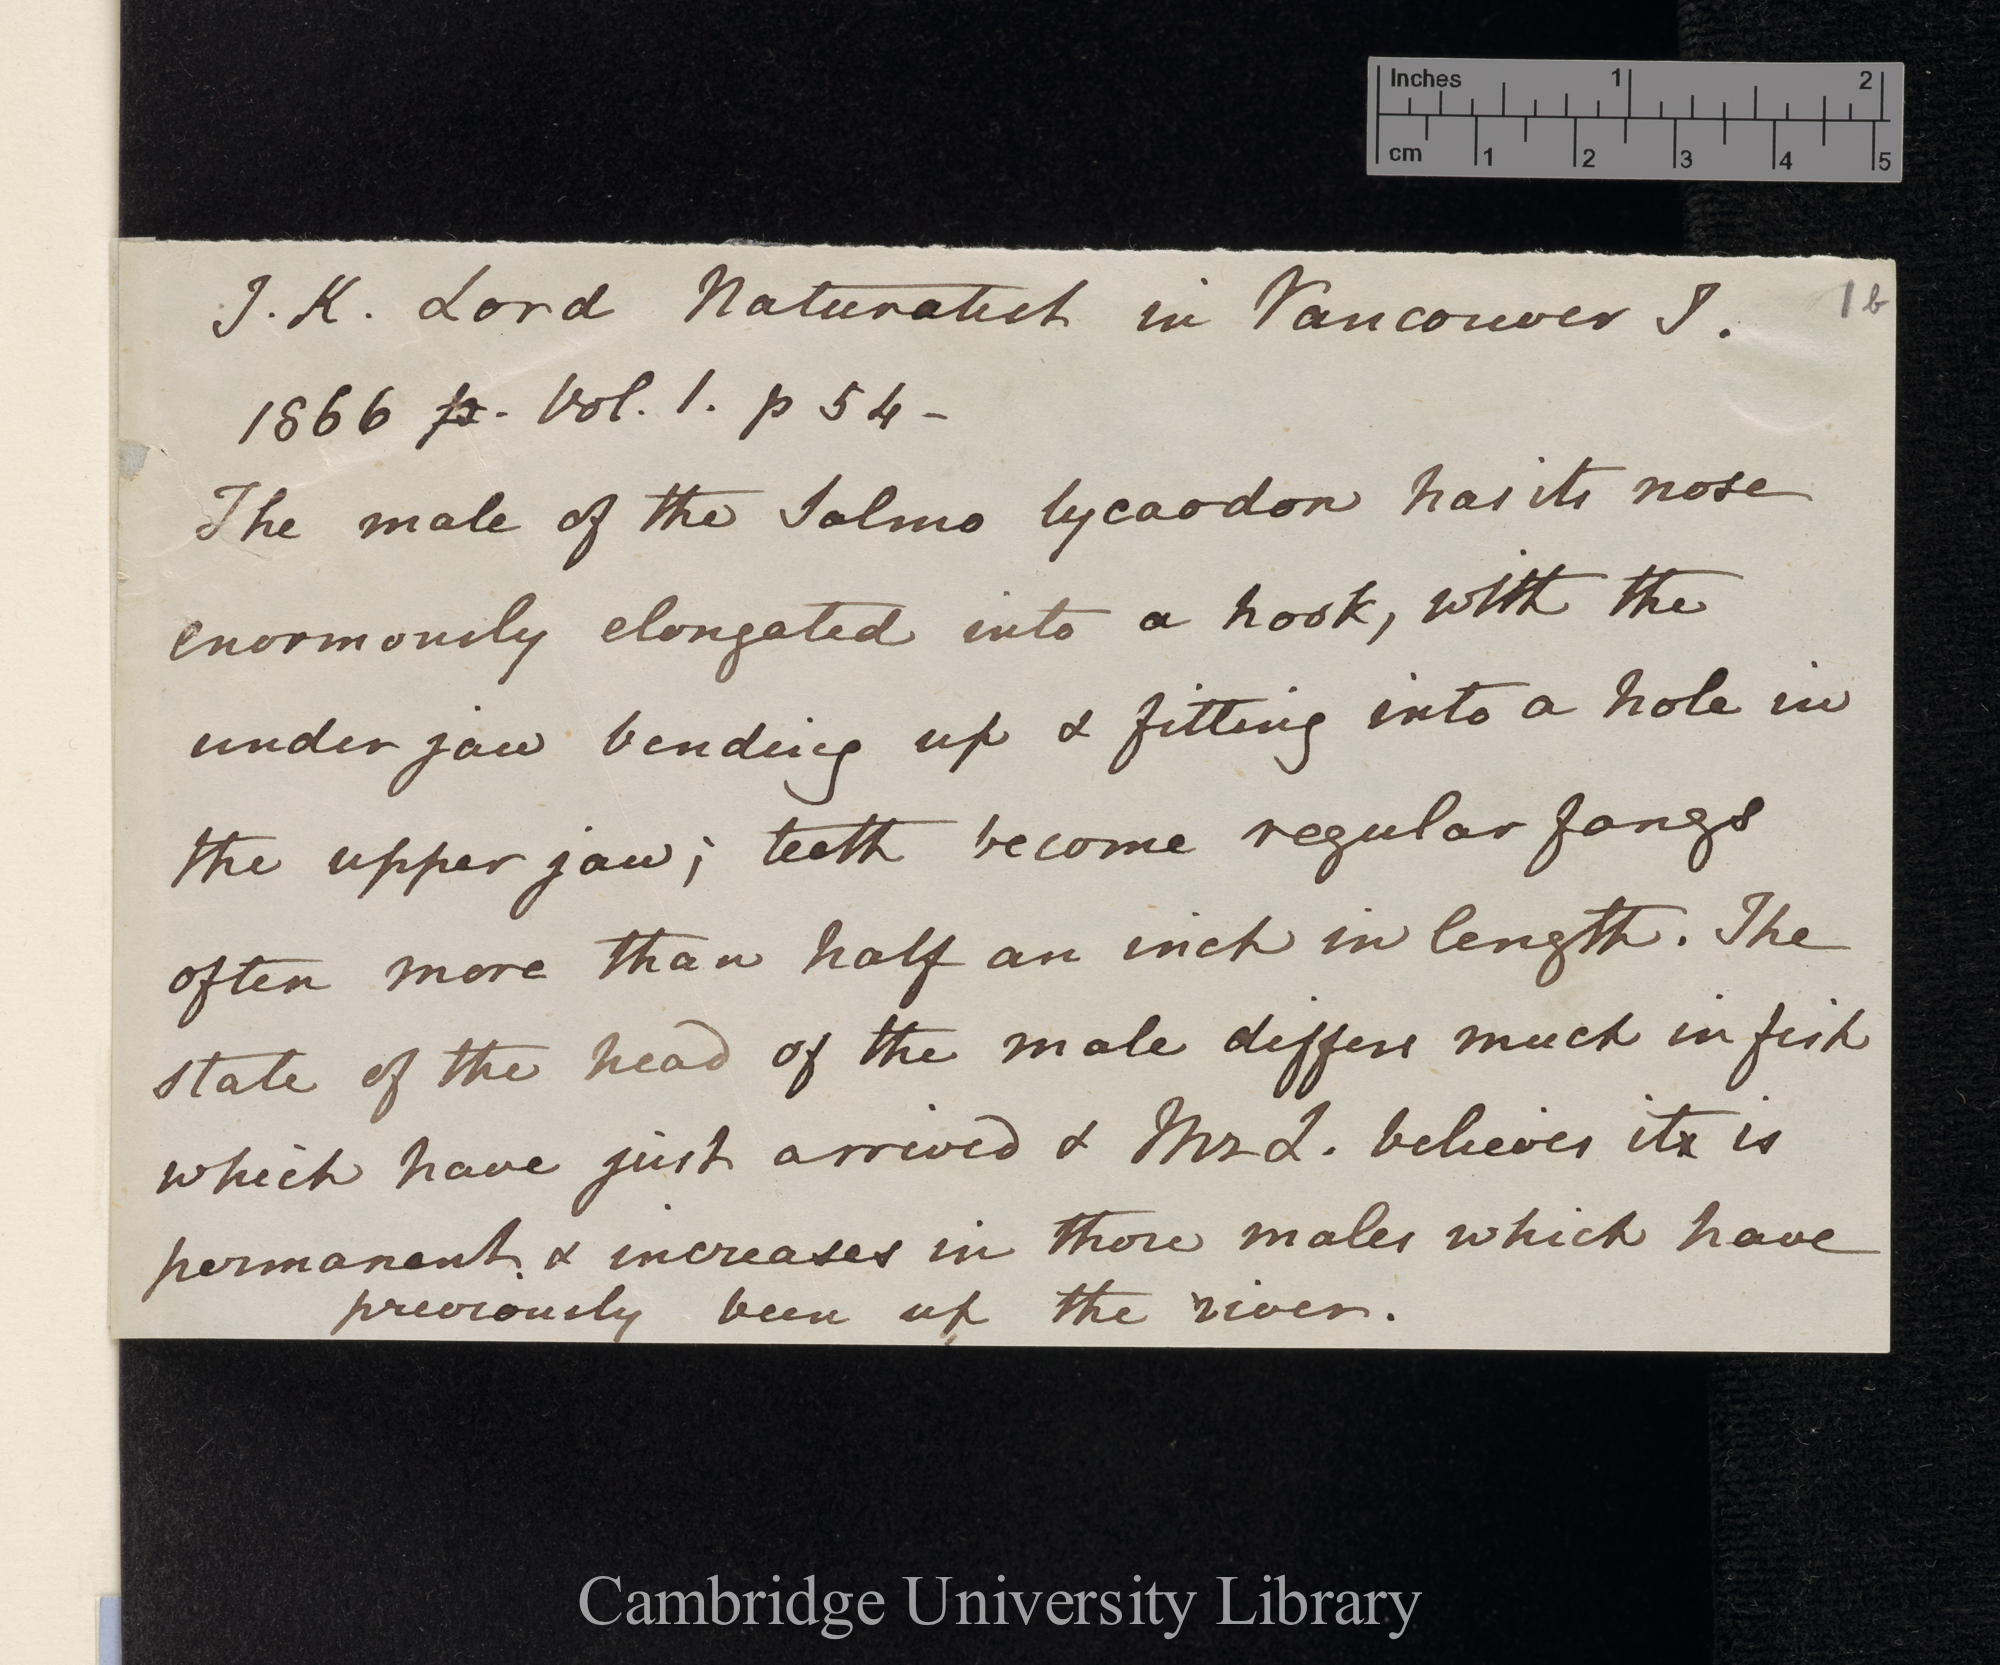 Inches 1 2
cm 1 2 3 4 5
1b
J. K. Lord Naturalist in Vancouver I.
1866 p. Vol. 1. p 54-
The male of the Salmo lycaodon has its nose
enormously elongated into a hook, with the
under jaw bending up & fitting into a hole in
the upper jaw; teeth become regular fangs
often more than half an inch in length. The
state of the head of the male differs much in fish
which have just arrived & Mr L. believes it is
permanent. & increases in those males which have
previously been up the river.
Cambridge University Library